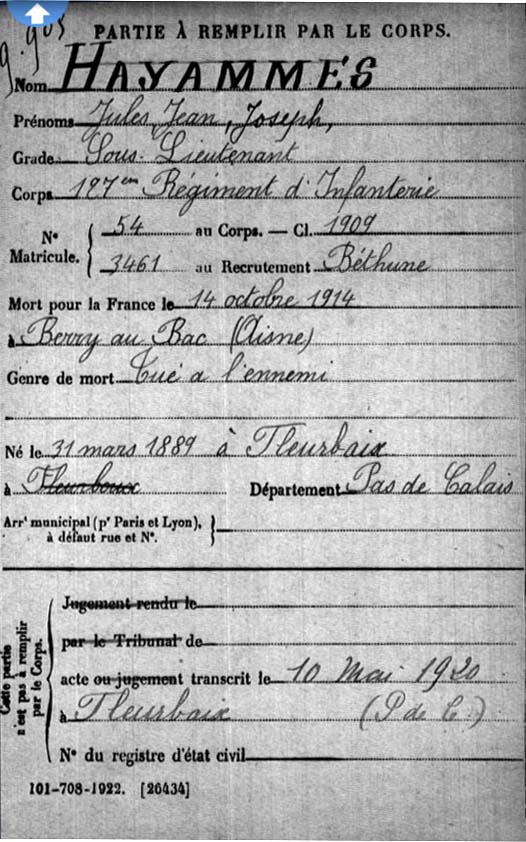 9.908
PARTIE À REMPLIR PAR LE CORPS.
Nom HAYAMMES
Prénoms Jules, Jean, Joseph,
Grade Sous-Lieutenant
Corps 127em Régiment d'Infanterie
N° Matricule. { 54 au Corps. — Cl. 1909
3461 au Recrutement Béthune
Mort pour la France le 14 octobre 1914
à Berry au Bac (Aisne)
Genre de mort Tué a l'ennemi
Né le 31 mars 1889 à Fleurbaix
à Fleurboux Département Pas de Calais
Arrt municipal (pr Paris et Lyon), }
à défaut rue et N°.
Cette partie n'est pas à remplir par le Corps. {
Jugement rendu le
par le Tribunal de
acte ou jugement transcrit le 10 Mai 1920
à Fleurbaix (P de C.)
N° du registre d'état civil
101-708-1922. [26434]